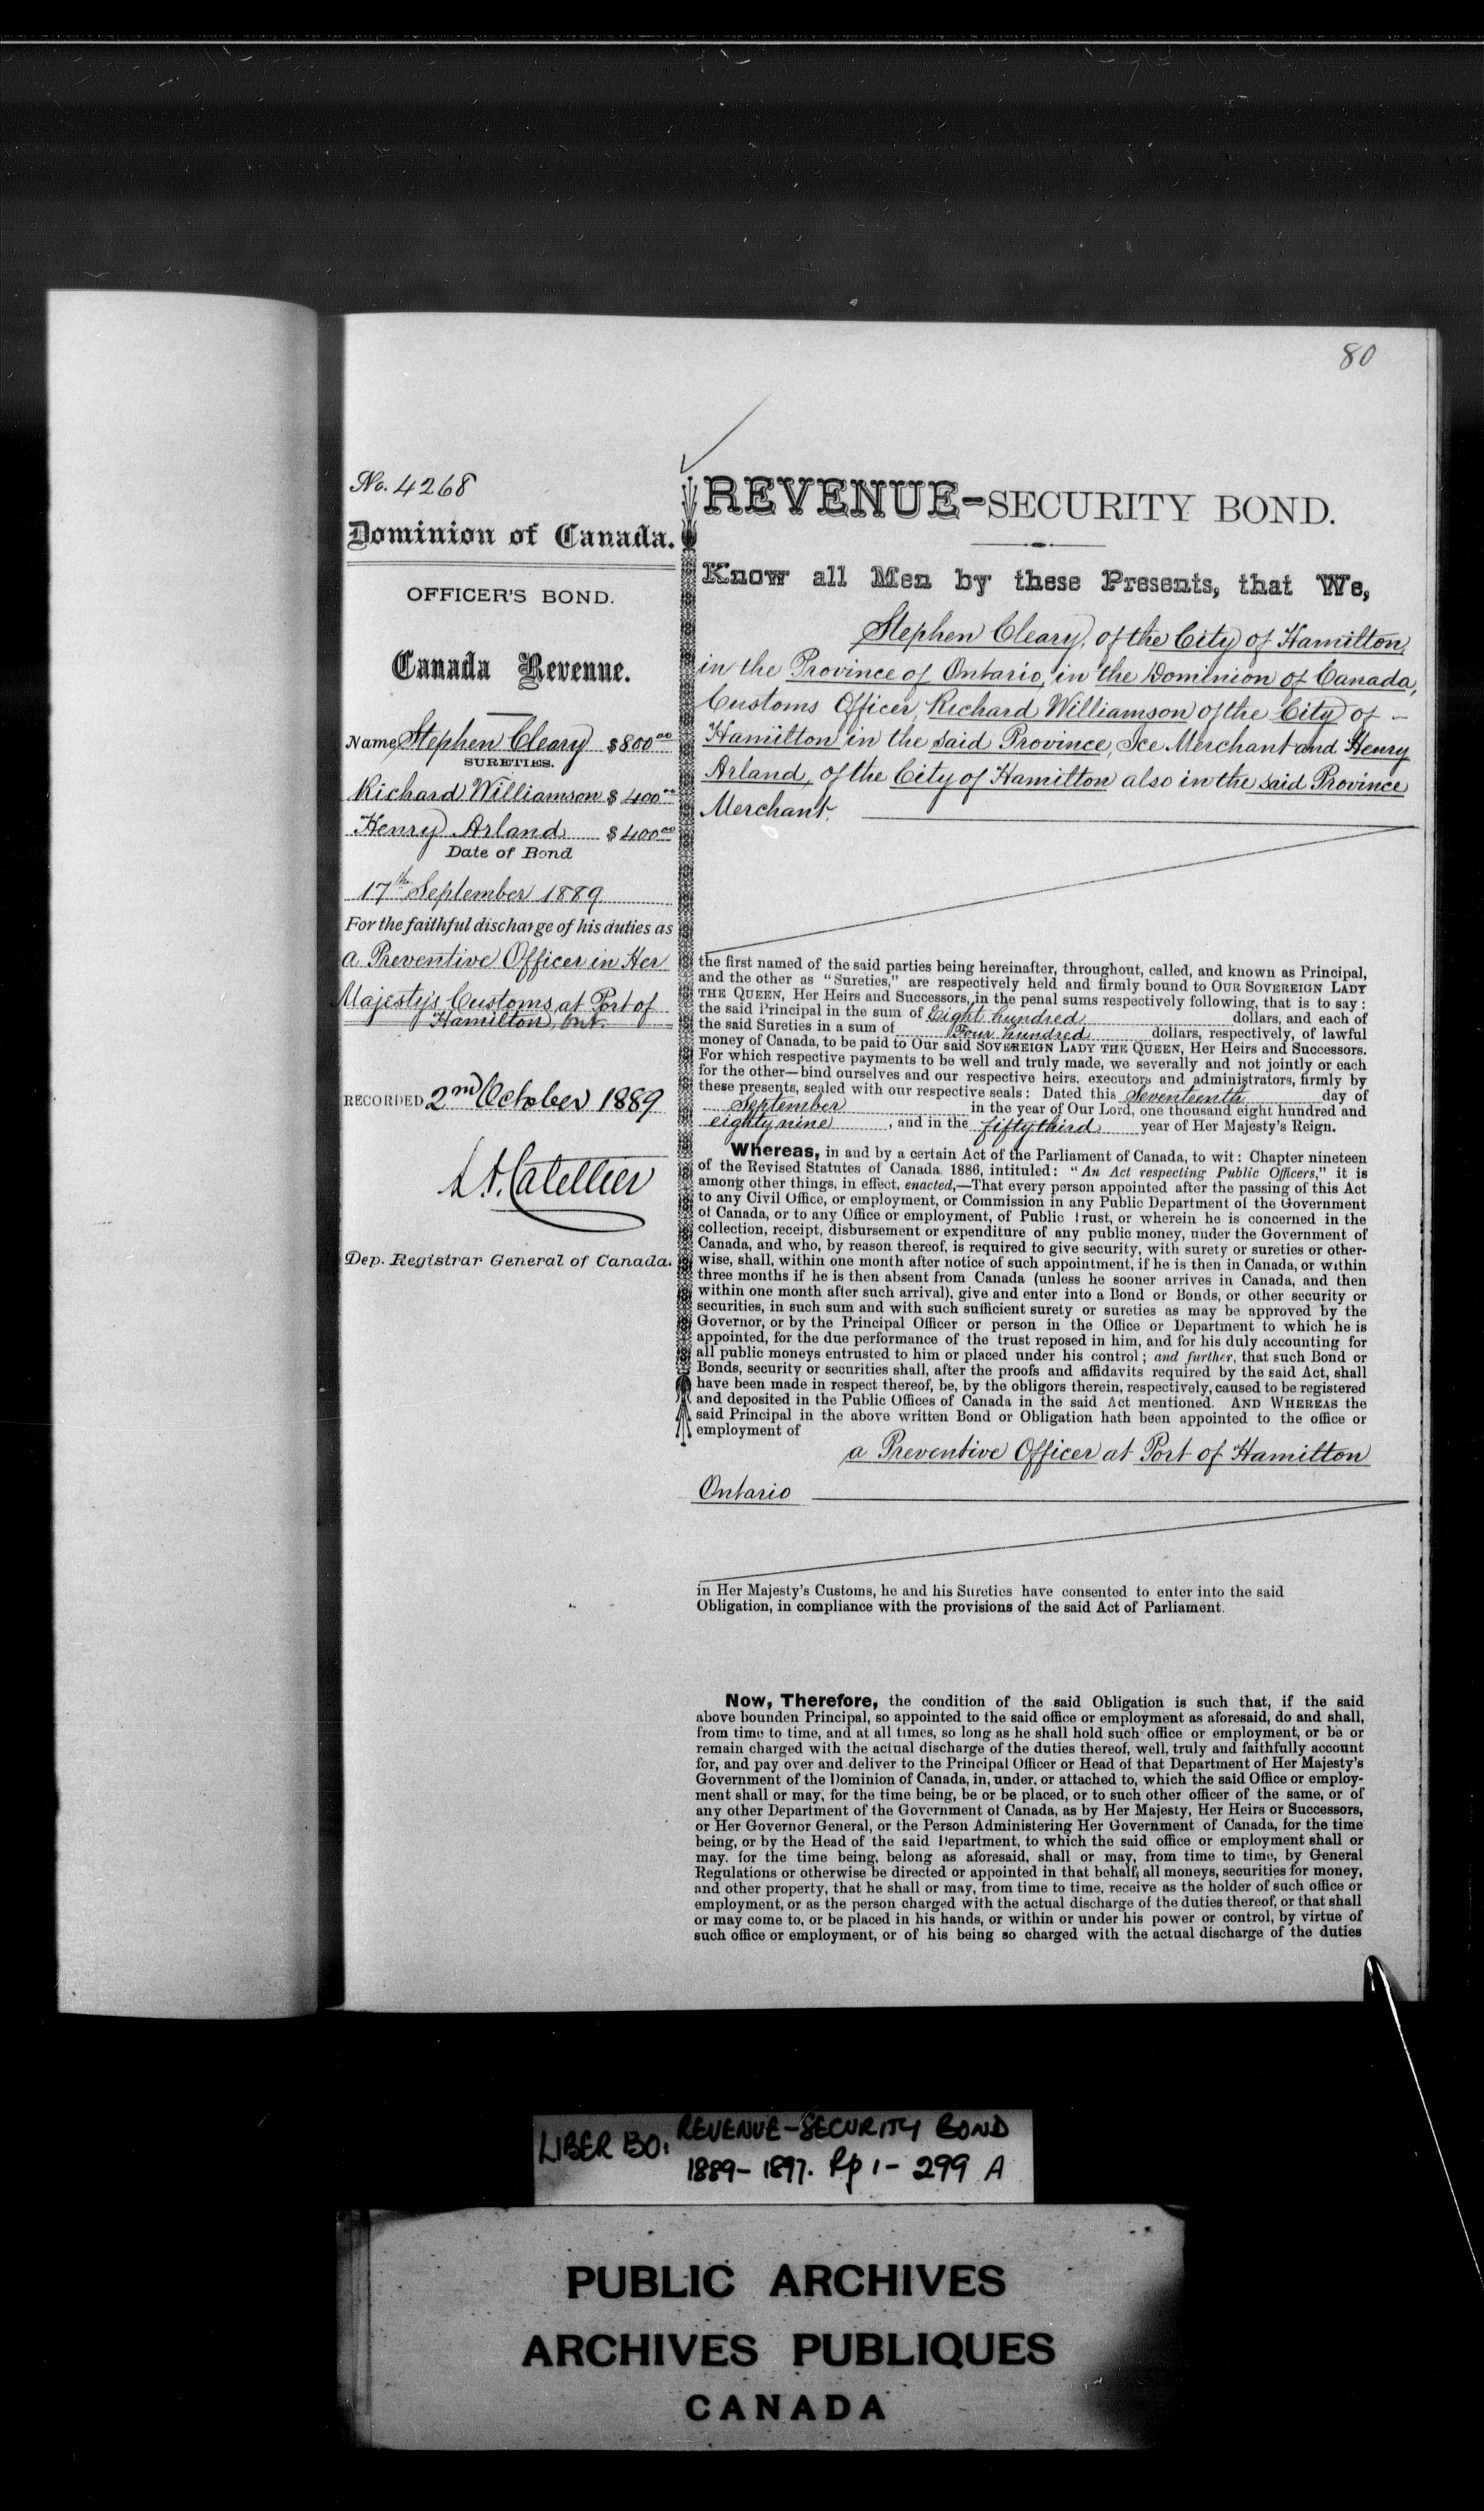 80
No. 4268
Dominion of Canada.
OFFICER'S BOND.
Canada Revenue.
Name Stephen Cleary $800.00
SURETIES.
Richard Williamson $400.00
Henry Arland $400.00
Date of Bond
17th September 1889
For the faithful discharge of his duties as
a Preventive Officer in Her
Majesty's Customs at Port of
Hamilton, Ont.
RECORDED 2nd October 1889
L. A. Catellier
Dep. Registrar General of Canada.
REVENUE-SECURITY BOND.
Know all Men by these Presents, that We,
Stephen Cleary, of the City of Hamilton,
in the Province of Ontario, in the Dominion of Canada,
Customs Officer, Richard Williamson of the City of -
Hamilton in the said Province, Ice Merchant and Henry
Arland, of the City of Hamilton also in the said Province
Merchant.
the first named of the said parties being hereinafter, throughout, called, and known as Principal,
and the other as "Sureties," are respectively held and firmly bound to OUR SOVEREIGN LADY
THE QUEEN, Her Heirs and Successors, in the penal sums respectively following, that is to say:
the said Principal in the sum of Eight hundred dollars, and each of
the said Sureties in a sum of Four hundred dollars, respectively, of lawful
money of Canada, to be paid to Our said SOVEREIGN LADY THE QUEEN, Her Heirs and Successors.
For which respective payments to be well and truly made, we severally and not jointly or each
for the other—bind ourselves and our respective heirs, executors and administrators, firmly by
these presents, sealed with our respective seals: Dated this Seventeenth day of
September in the year of Our Lord, one thousand eight hundred and
eighty nine, and in the fifty third year of Her Majesty's Reign.
Whereas, in and by a certain Act of the Parliament of Canada, to wit: Chapter nineteen
of the Revised Statutes of Canada 1886, intituled: "An Act respecting Public Officers," it is
among other things, in effect, enacted,—That every person appointed after the passing of this Act
to any Civil Office, or employment, or Commission in any Public Department of the Government
of Canada, or to any Office or employment, of Public Trust, or wherein he is concerned in the
collection, receipt, disbursement or expenditure of any public money, under the Government of
Canada, and who, by reason thereof, is required to give security, with surety or sureties or other-
wise, shall, within one month after notice of such appointment, if he is then in Canada, or within
three months if he is then absent from Canada (unless he sooner arrives in Canada, and then
within one month after such arrival), give and enter into a Bond or Bonds, or other security or
securities, in such sum and with such sufficient surety or sureties as may be approved by the
Governor, or by the Principal Officer or person in the Office or Department to which he is
appointed, for the due performance of the trust reposed in him, and for his duly accounting for
all public moneys entrusted to him or placed under his control; and further, that such Bond or
Bonds, security or securities shall, after the proofs and affidavits required by the said Act, shall
have been made in respect thereof, be, by the obligors therein, respectively, caused to be registered
and deposited in the Public Offices of Canada in the said Act mentioned. AND WHEREAS the
said Principal in the above written Bond or Obligation hath been appointed to the office or
employment of
a Preventive Officer at Port of Hamilton
Ontario
in Her Majesty's Customs, he and his Sureties have consented to enter into the said
Obligation, in compliance with the provisions of the said Act of Parliament.
Now, Therefore, the condition of the said Obligation is such that, if the said
above bounden Principal, so appointed to the said office or employment as aforesaid, do and shall,
from time to time, and at all times, so long as he shall hold such office or employment, or be or
remain charged with the actual discharge of the duties thereof, well, truly and faithfully account
for, and pay over and deliver to the Principal Officer or Head of that Department of Her Majesty's
Government of the Dominion of Canada, in, under, or attached to, which the said Office or employ-
ment shall or may, for the time being, be or be placed, or to such other officer of the same, or of
any other Department of the Government of Canada, as by Her Majesty, Her Heirs or Successors,
or Her Governor General, or the Person Administering Her Government of Canada, for the time
being, or by the Head of the said Department, to which the said office or employment shall or
may, for the time being, belong as aforesaid, shall or may, from time to time, by General
Regulations or otherwise be directed or appointed in that behalf, all moneys, securities for money,
and other property, that he shall or may, from time to time, receive as the holder of such office or
employment, or as the person charged with the actual discharge of the duties thereof, or that shall
or may come to, or be placed in his hands, or within or under his power or control, by virtue of
such office or employment, or of his being so charged with the actual discharge of the duties
LIBER BO: REVENUE-SECURITY BOND
1889-1897. Pp 1-299 A
PUBLIC ARCHIVES
ARCHIVES PUBLIQUES
CANADA